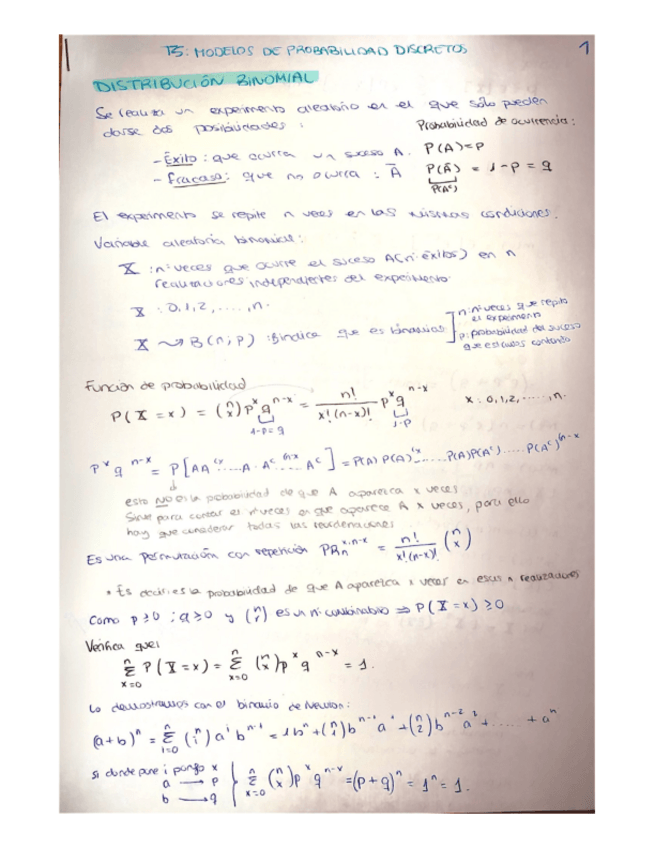 T5: MODELOS DE PROBABILIDAD DISCRETOS
1
DISTRIBUCIÓN BINOMIAL
Se realiza un experimento aleatorio en el que sólo pueden
darse dos posibilidades:
Probabilidad de ocurrencia:
- Éxito: que ocurra un suceso A. P(A)=p
- Fracaso: que no ocurra : Ā P(Ā) = 1-p = q
P(Aᶜ)
El experimento se repite n veces en las mismas condiciones.
Variable aleatoria binomial:
X : nº veces que ocurre el suceso A (nº éxitos) en n
realizaciones independientes del experimento.
X : 0,1,2, ...., n.
X ⤳ B(n;p) : B indica que es binomial
n: nº veces que repito
el experimento
p: probabilidad del suceso
que estamos contando
Función de probabilidad
P(X=x) = (n x) pˣ qⁿ⁻ˣ = n! / x!(n-x)! pˣ qⁿ⁻ˣ x: 0,1,2,....,n.
1-p=q 1-p
pˣ qⁿ⁻ˣ = P[AA ⁽ˣ .... A · Aᶜ ⁽ⁿ⁻ˣ .... Aᶜ] = P(A) P(A) ⁽ˣ .... P(A) P(Aᶜ) .... P(Aᶜ) ⁽ⁿ⁻ˣ
esto NO es la probabilidad de que A aparezca x veces
Sirve para contar el nº veces en que aparece A x veces, para ello
hay que considerar todas las reordenaciones
Es una permutación con repetición PRₙˣ'ⁿ⁻ˣ = n! / x!(n-x)! (n x)
* Es decir: es la probabilidad de que A aparezca x veces en esas n realizaciones
Como p ≥ 0 ; q ≥ 0 y (n r) es un nº combinatorio ⇒ P(X=x) ≥ 0
Verifica que:
Σⁿₓ₌₀ P(X=x) = Σⁿₓ₌₀ (n x) pˣ qⁿ⁻ˣ = 1.
Lo demostramos con el binomio de Newton:
(a+b)ⁿ = Σⁿᵢ₌₀ (n i) aⁱ bⁿ⁻ⁱ = 1bⁿ + (n 1) bⁿ⁻¹ a¹ + (n 2) bⁿ⁻² a² + ...... + aⁿ
si donde pone i pongo x
a → p
b → q
Σⁿₓ₌₀ (n x) pˣ qⁿ⁻ˣ = (p+q)ⁿ = 1ⁿ = 1.